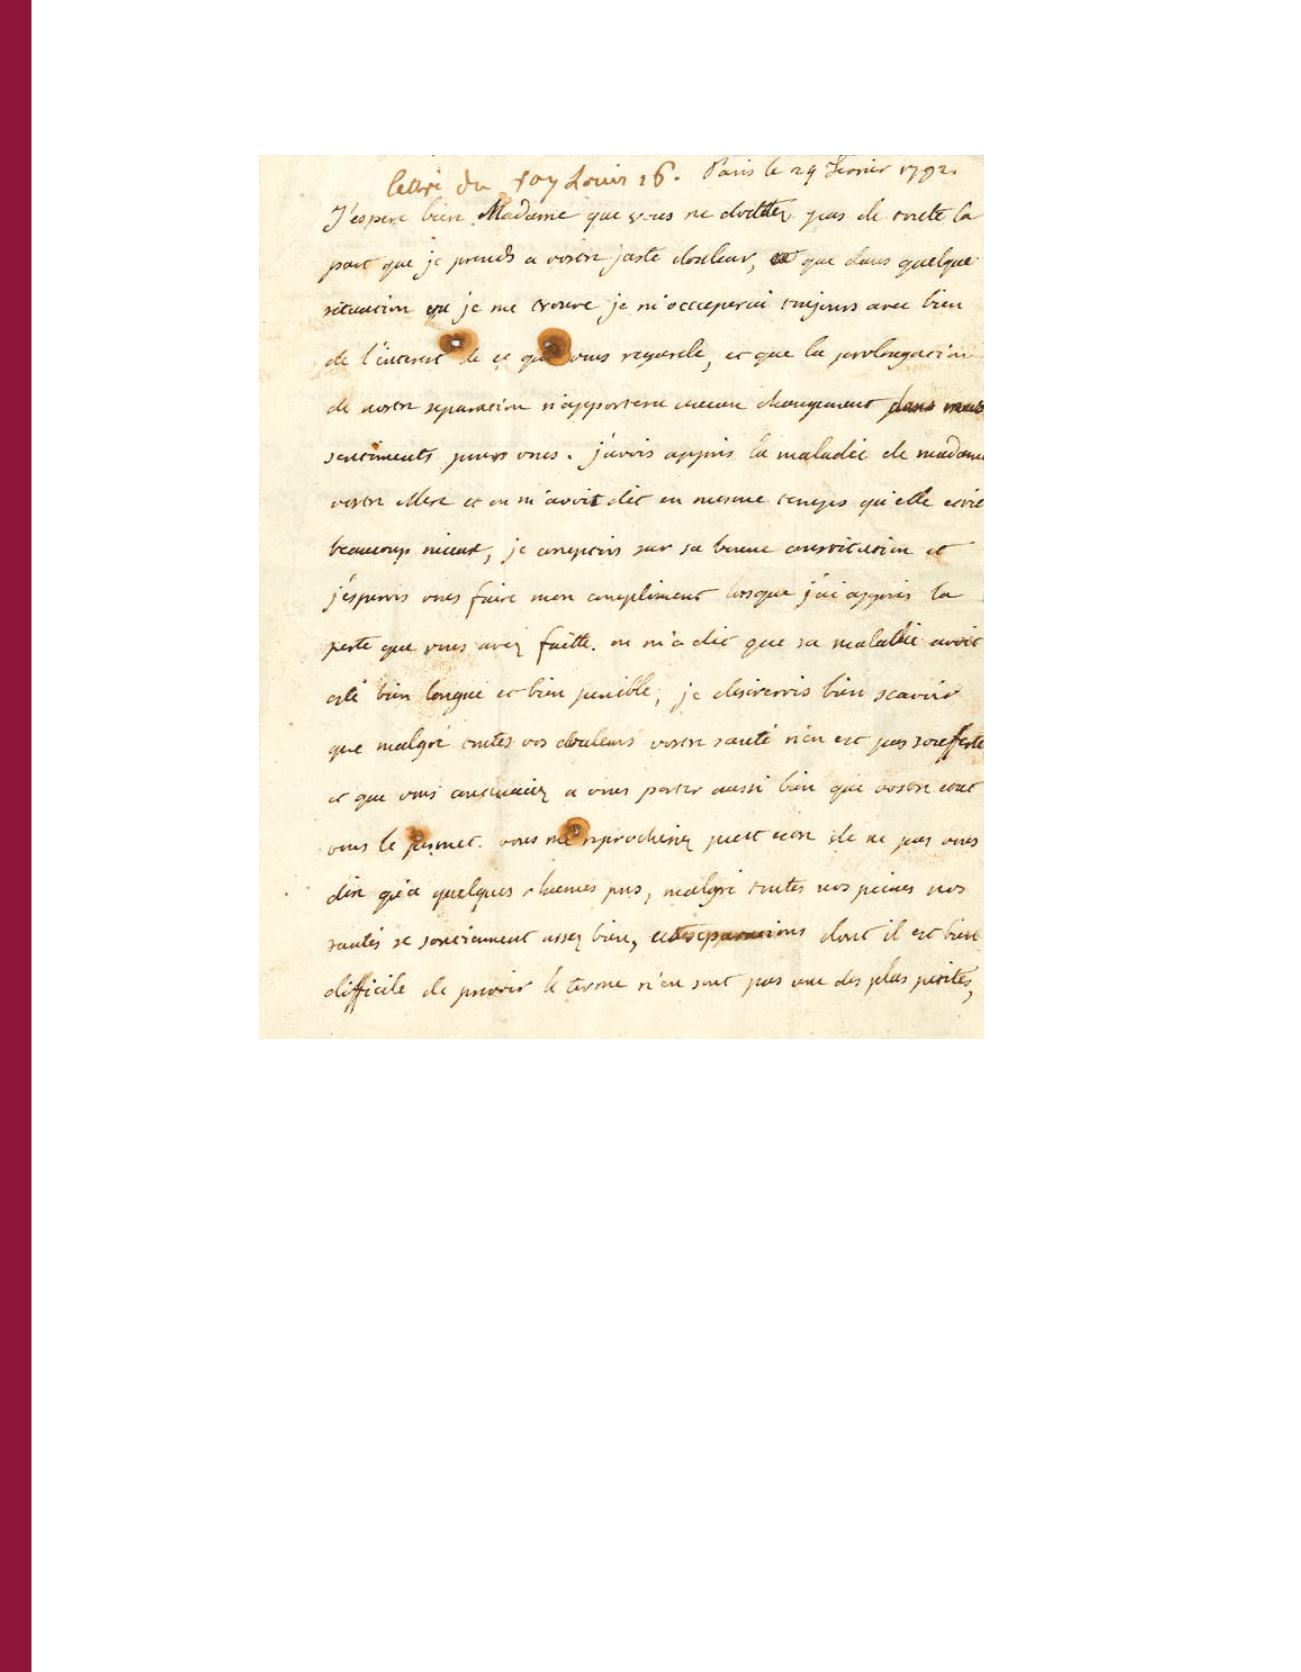 lettre du roy Louis 16. Paris le 29 Fevrier 1792.
J'espere bien Madame que vous ne doutez pas de toute la
part que je prends a vostre juste douleur, et que dans quelque
situation que je me trouve je m'occuperai toujours avec bien
de l'interest de ce qui vous regarde, et que la prolongation
de nostre separation n'apportera aucun changement dans mes
sentiments pour vous. j'avois appris la maladie de madame
vostre Mere et on m'avoit dit en mesme temps qu'elle etoit
beaucoup mieux, je comptois sur sa bonne constitution et
j'esperois vous faire mon compliment lorsque j'ai appris la
perte que vous avez faitte. on m'a dit que sa maladie avoit
esté bien longue et bien penible, je desirerois bien scavoir
que malgré toutes vos douleurs vostre santé n'en est pas soufferte
et que vous continuiez a vous porter aussi bien que vostre etat
vous le permet. vous me reprocheriez peut etre de ne pas vous
dire qu'a quelques rhumes pres, malgré toutes nos peines nos
santés se soutiennent assez bien, separations dont il est bien
difficile de prevoir le terme n'en sont pas une des plus petites,